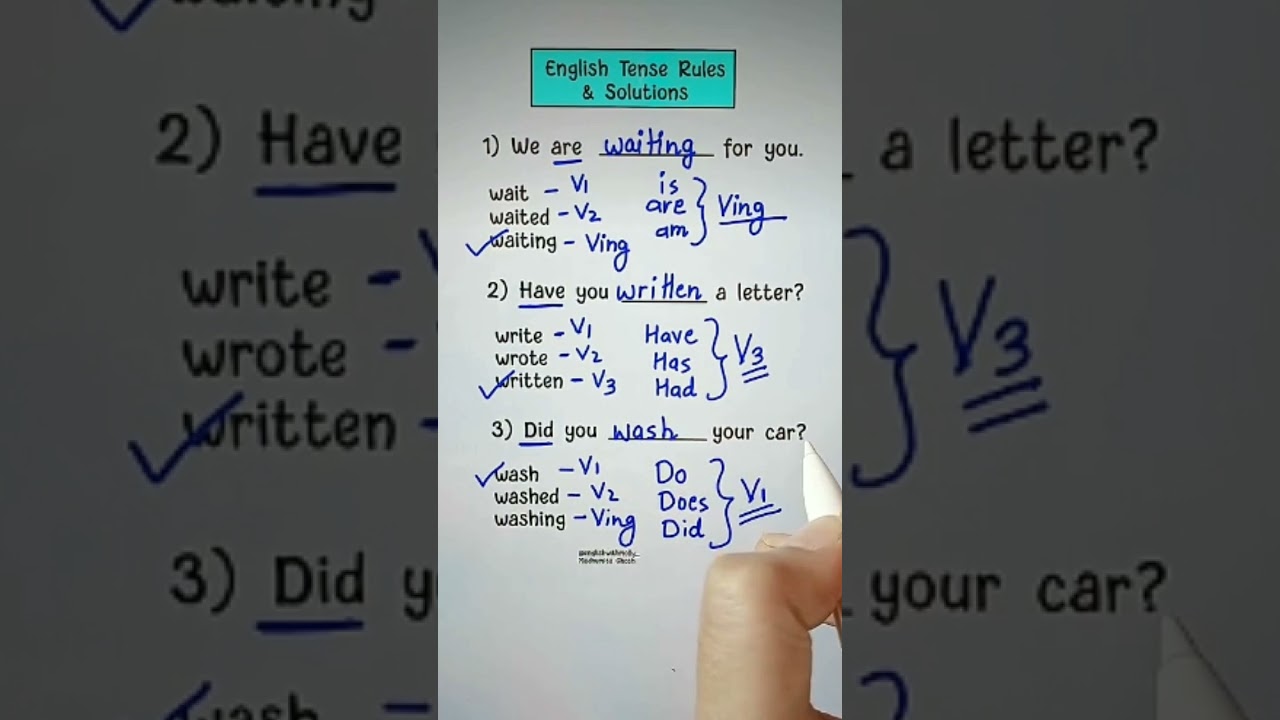 English Tense Rules
& Solutions
1) We are waiting for you.
wait – V1 is
waited – V2 are } Ving
✓ waiting – Ving am
2) Have you written a letter?
write – V1 Have
wrote – V2 Has } V3
✓ written – V3 Had
3) Did you wash your car?
✓ wash – V1 Do
washed – V2 Does } V1
washing – Ving Did